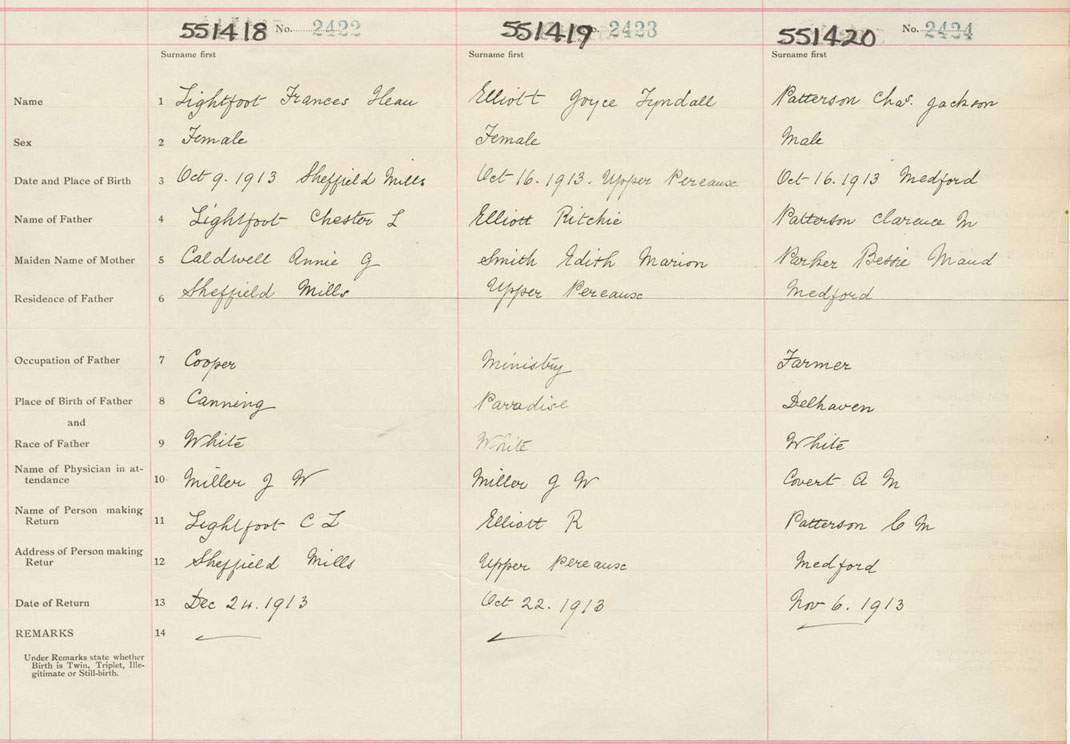 551418 No. 2422 551419 No. 2423 551420 No. 2424
Surname first Surname first Surname first
Name 1 Lightfoot Frances Elliott Joyce Tyndall Patterson Chas. Jackson
Sex 2 Female Female Male
Date and Place of Birth 3 Oct 9. 1913 Sheffield Mills Oct 16. 1913. Upper Pereause Oct 16. 1913 Medford
Name of Father 4 Lightfoot Chester L Elliott Ritchie Patterson Clarence M
Maiden Name of Mother 5 Caldwell Annie G Smith Edith Marion Parker Bessie Maud
Residence of Father 6 Sheffield Mills Upper Pereause Medford
Occupation of Father 7 Cooper Ministry Farmer
Place of Birth of Father 8 Canning Paradise Delhaven
and
Race of Father 9 White White White
Name of Physician in at-
tendance 10 Miller J W Miller J W Covert A M
Name of Person making
Return 11 Lightfoot C L Elliott R Patterson C M
Address of Person making
Retur 12 Sheffield Mills Upper Pereause Medford
Date of Return 13 Dec 24. 1913 Oct 22. 1913 Nov 6. 1913
REMARKS 14
Under Remarks state whether
Birth is Twin, Triplet, Ille-
gitimate or Still-birth.